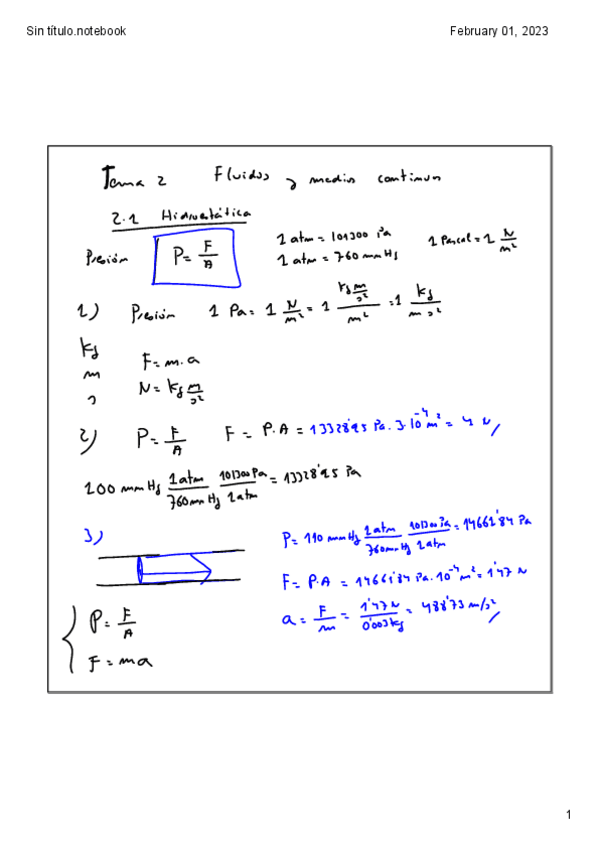 Sin título.notebook
February 01, 2023
Tema 2 Fluidos y medios continuos
2.1 Hidrostática
Presión P= F/A 1 atm = 101300 Pa 1 Pascal = 1 N/m²
1 atm = 760 mm Hg
1) Presión 1 Pa = 1 N/m² = 1 kg m/s² / m² = 1 kg / m s²
kg
m F = m.a
s N = kg m/s²
2) P = F/A F = P.A = 13328'95 Pa . 3.10⁻⁴ m² = 4 N
100 mm Hg 1 atm / 760 mm Hg 101300 Pa / 1 atm = 13328'95 Pa
3) P = 110 mm Hg 1 atm / 760 mm Hg 101300 Pa / 1 atm = 14661'84 Pa
F = P.A = 14661'84 Pa . 10⁻⁴ m² = 1'47 N
P = F/A a = F/m = 1'47 N / 0'003 kg = 488'73 m/s²
F = ma
1